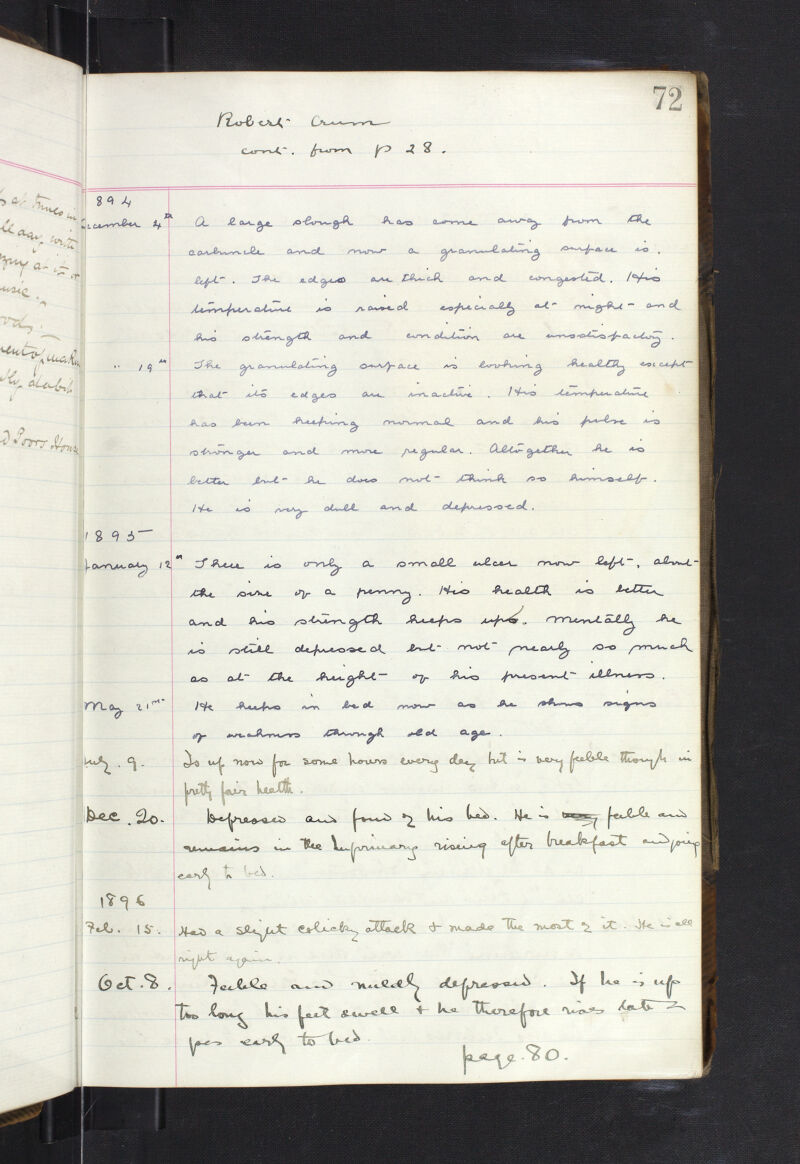 72
Robert Crum
cont. from p 28.
894
December 4th A large slough has come away from the
carbuncle and now a granulating surface is
left. The edges are thick and congested. His
temperature is raised especially at night and
his strength and condition are unsatisfactory.
" 19th The granulating surface is looking healthy except
that its edges are inactive. His temperature
has been keeping normal and his pulse is
stronger and more regular. Altogether he is
better but he does not think so himself.
He is very dull and depressed.
1895
January 12th There is only a small ulcer now left, about
the size of a penny. His health is better
and his strength keeps up. Mentally he
is still depressed but not nearly so much
as at the height of his present illness.
May 21st He keeps in bed now as he shows signs
of weakness through old age.
July. 9. Is up now for some hours every day but is very feeble though in
pretty fair health.
Dec. 20. Depressed and fond of his bed. He is very feeble and
remains in the Infirmary rising after breakfast and going
early to bed.
1896
Feb. 15. Had a slight colicky attack & made the most of it. He is all
right again.
Oct. 8. Feeble and mildly depressed. If he is up
too long his feet swell & he therefore rises late &
goes early to bed.
page. 80.
s at times in
ll day, with
music.
oods.
ment of makin
d Poors House